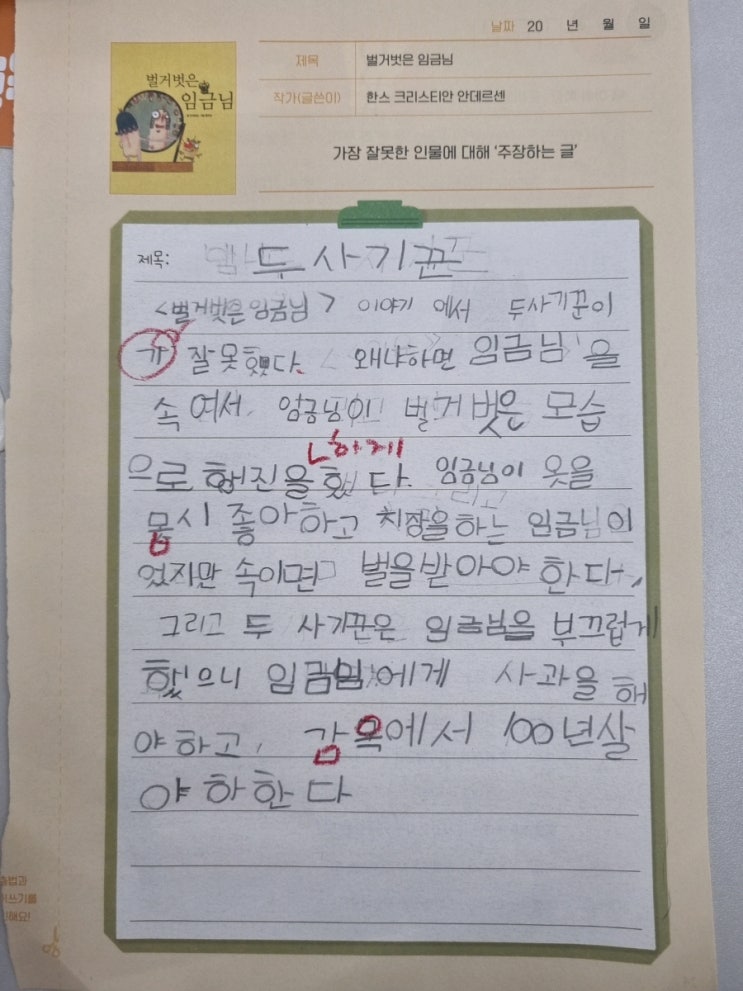 날짜 20 년 월 일
벌거벗은
임금님
제목 벌거벗은 임금님
작가(글쓴이) 한스 크리스티안 안데르센
가장 잘못한 인물에 대해 '주장하는 글'
제목: 두 사기꾼
<벌거벗은 임금님> 이야기 에서 두사기꾼이
가 잘못했다. 왜냐하면 임금님을
속여서, 임금님이 벌거벗은 모습
하게
으로 행진을 했다. 임금님이 옷을
몹시 좋아하고 치장을하는 임금님이
었지만 속이면 벌을받아야 한다.
그리고 두 사기꾼은 임금님을 부끄럽게
했으니 임금님에게 사과을 해
야하고, 감옥에서 100년살
야하한다
춤법과
써쓰기를
인해요!